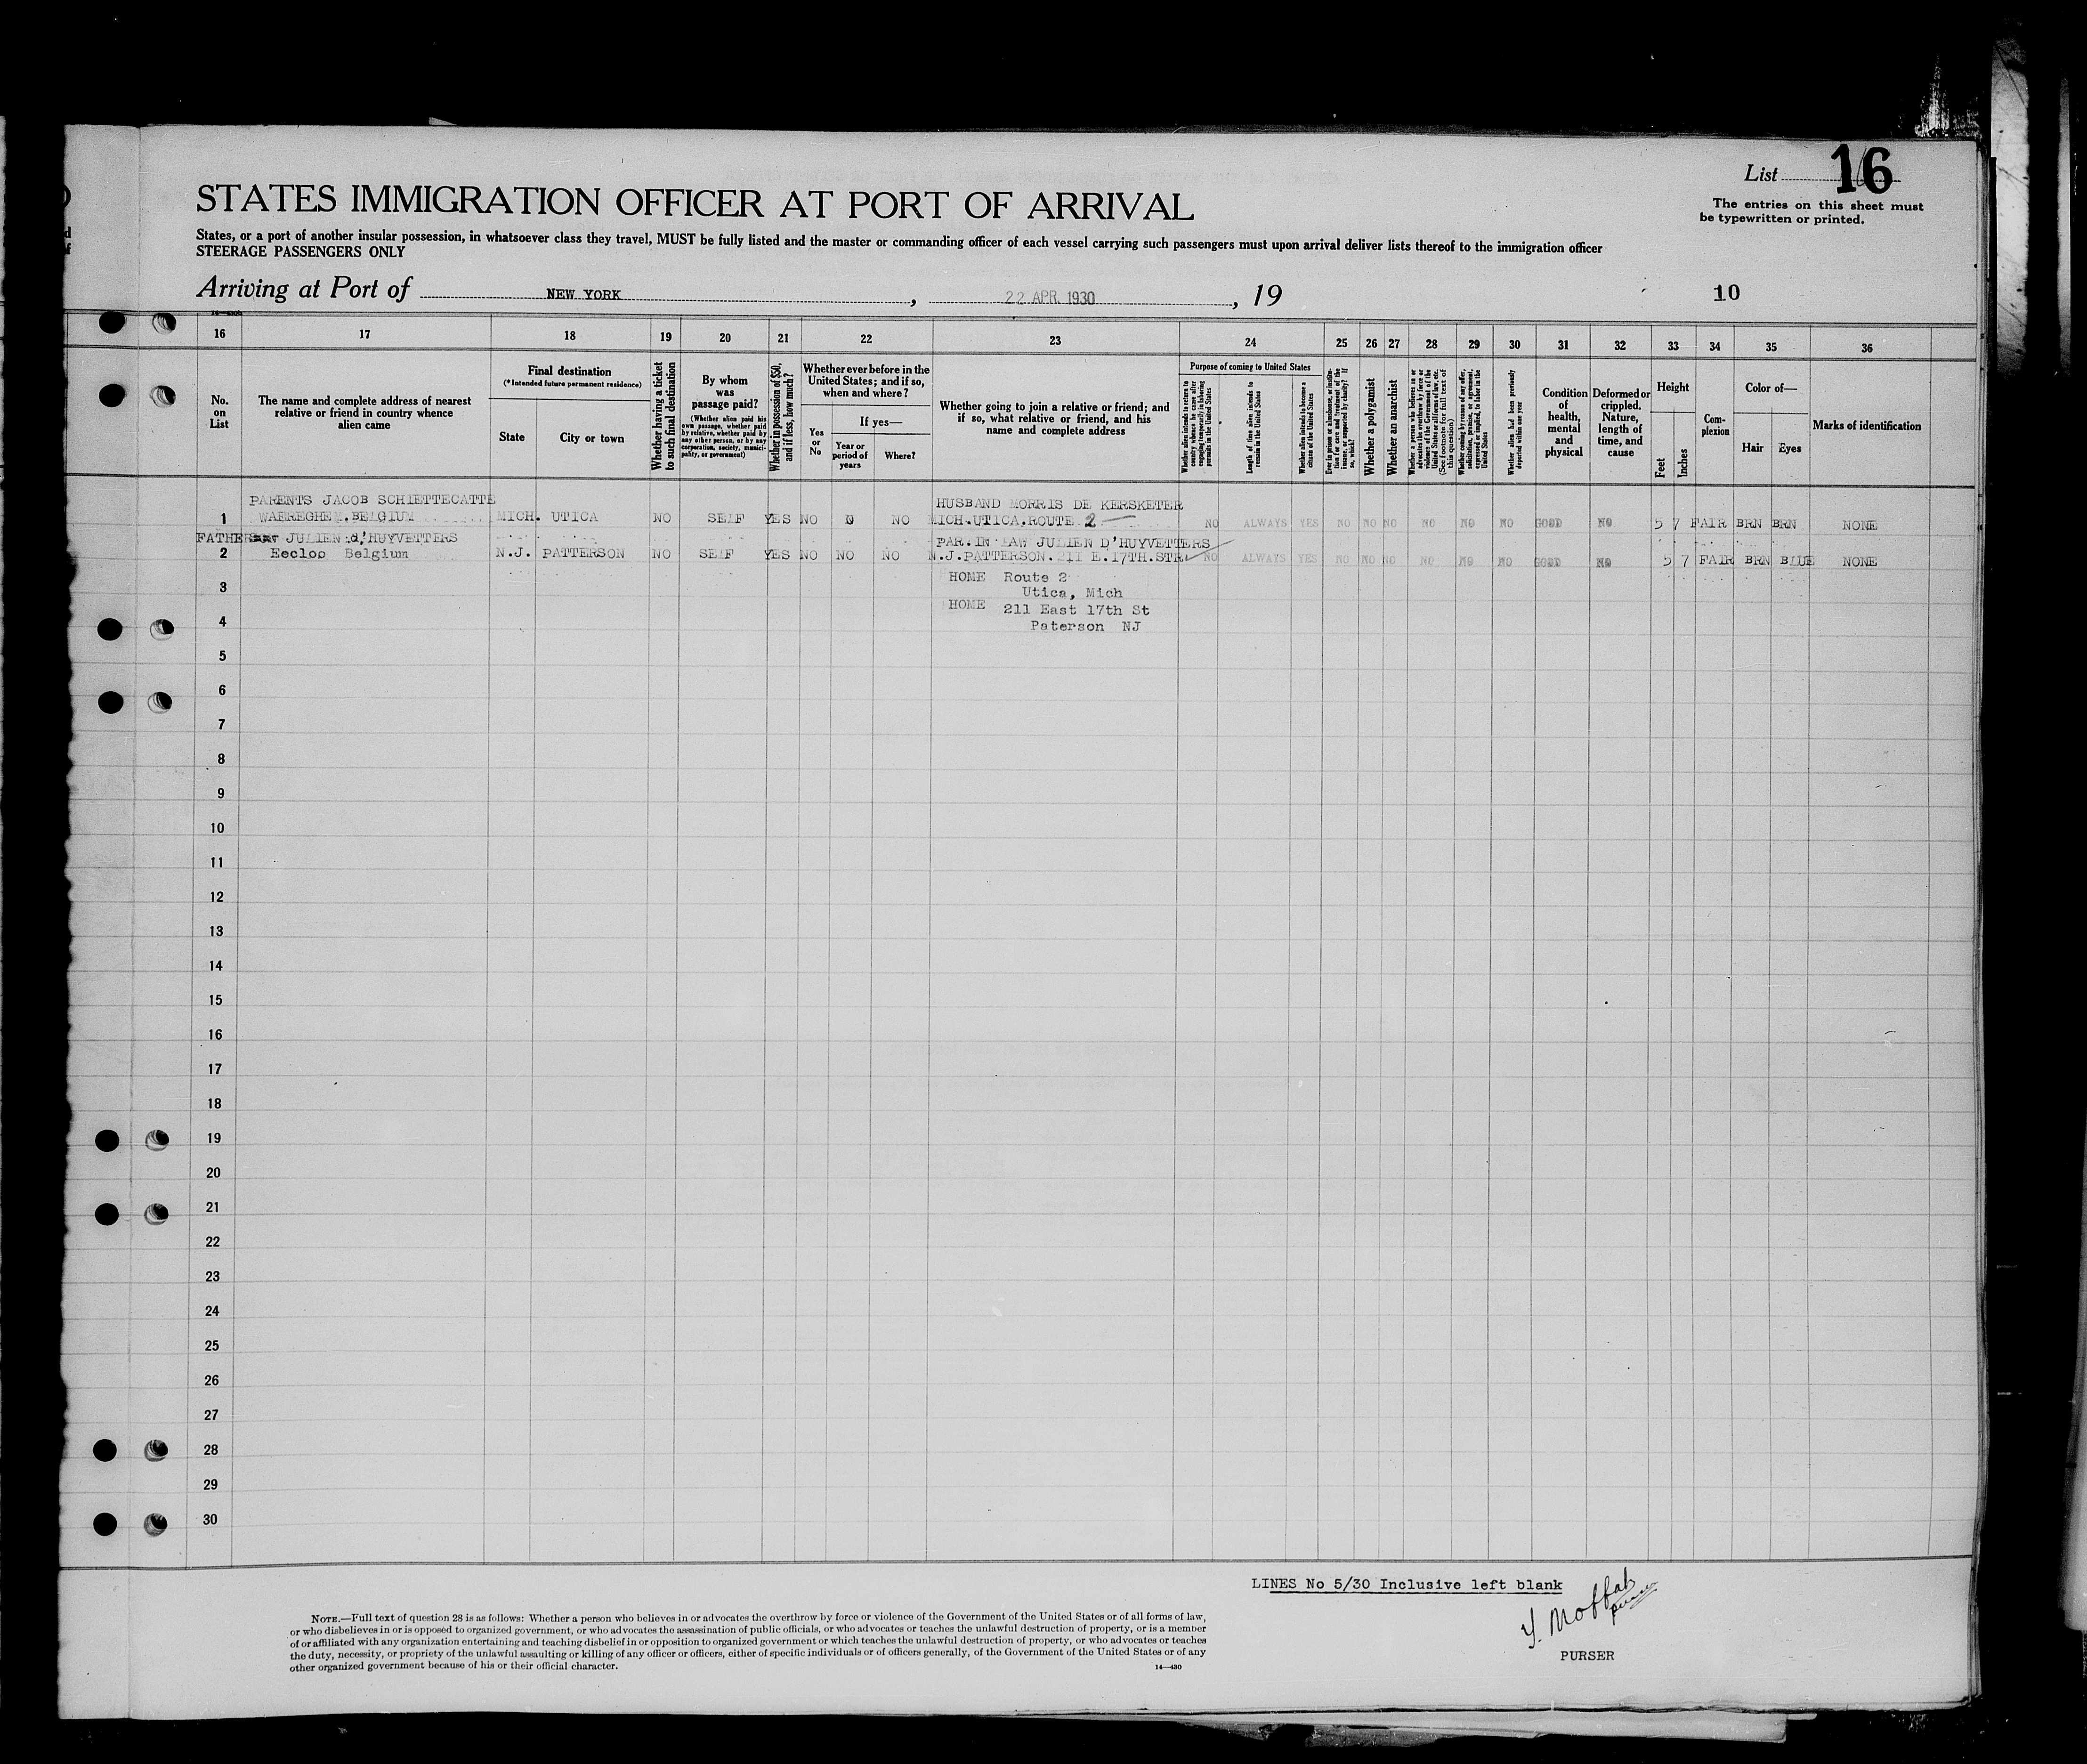 List 16
The entries on this sheet must
be typewritten or printed.
STATES IMMIGRATION OFFICER AT PORT OF ARRIVAL
States, or a port of another insular possession, in whatsoever class they travel, MUST be fully listed and the master or commanding officer of each vessel carrying such passengers must upon arrival deliver lists thereof to the immigration officer
STEERAGE PASSENGERS ONLY
Arriving at Port of NEW YORK , 22 APR 1930 , 19
10
16 17 18 19 20 21 22 23 24 25 26 27 28 29 30 31 32 33 34 35 36
No.
on
List
The name and complete address of nearest
relative or friend in country whence
alien came
Final destination
(*Intended future permanent residence)
State
City or town
Whether having a ticket
to such final destination
By whom
was
passage paid?
(Whether alien paid his
own passage, whether paid
by relative, whether paid by
any other person, or by any
corporation, society, munici-
pality, or government)
Whether in possession of $50,
and if less, how much?
Whether ever before in the
United States; and if so,
when and where?
Yes
or
No
If yes—
Year or
period of
years
Where?
Whether going to join a relative or friend; and
if so, what relative or friend, and his
name and complete address
Purpose of coming to United States
Whether alien intends to return to
country whence he came after
engaging temporarily in laboring
pursuits in the United States
Length of time alien intends to
remain in the United States
Whether alien intends to become a
citizen of the United States
Ever in prison or almshouse, or institu-
tion for care and treatment of the
insane, or supported by charity? If
so, which?
Whether a polygamist
Whether an anarchist
Whether a person who believes in or
advocates the overthrow by force or
violence of the Government of the
United States or all forms of law, etc.
(See footnote for full text of
this question)
Whether coming by reason of any offer,
solicitation, promise, or agreement,
expressed or implied, to labor in the
United States
Whether alien had been previously
deported within one year
Condition
of
health,
mental
and
physical
Deformed or
crippled.
Nature,
length of
time, and
cause
Height
Feet
Inches
Com-
plexion
Color of—
Hair
Eyes
Marks of identification
PARENTS JACOB SCHIETTECATTE HUSBAND MORRIS DE KERSKETER
1 WAEREGHEM.BELGIUM MICH. UTICA NO SELF YES NO NO MICH.UTICA.ROUTE 2 NO ALWAYS YES NO NO NO NO NO NO GOOD NO 5 7 FAIR BRN BRN NONE
FATHER JULIEN d'HUYVETTERS PAR.IN LAW JULIEN D'HUYVETTERS
2 Eecloo Belgium N.J. PATTERSON NO SELF YES NO NO NO N.J.PATTERSON.211 E.17TH.STR NO ALWAYS YES NO NO NO NO NO NO GOOD NO 5 7 FAIR BRN BLUE NONE
HOME Route 2
3
Utica, Mich
HOME 211 East 17th St
4
Paterson NJ
5
6
7
8
9
10
11
12
13
14
15
16
17
18
19
20
21
22
23
24
25
26
27
28
29
30
LINES No 5/30 Inclusive left blank
NOTE.—Full text of question 28 is as follows: Whether a person who believes in or advocates the overthrow by force or violence of the Government of the United States or of all forms of law,
or who disbelieves in or is opposed to organized government, or who advocates the assassination of public officials, or who advocates or teaches the unlawful destruction of property, or is a member
of or affiliated with any organization entertaining and teaching disbelief in or opposition to organized government or which teaches the unlawful destruction of property, or who advocates or teaches
the duty, necessity, or propriety of the unlawful assaulting or killing of any officer or officers, either of specific individuals or of officers generally, of the Government of the United States or of any
other organized government because of his or their official character.
14—430
PURSER